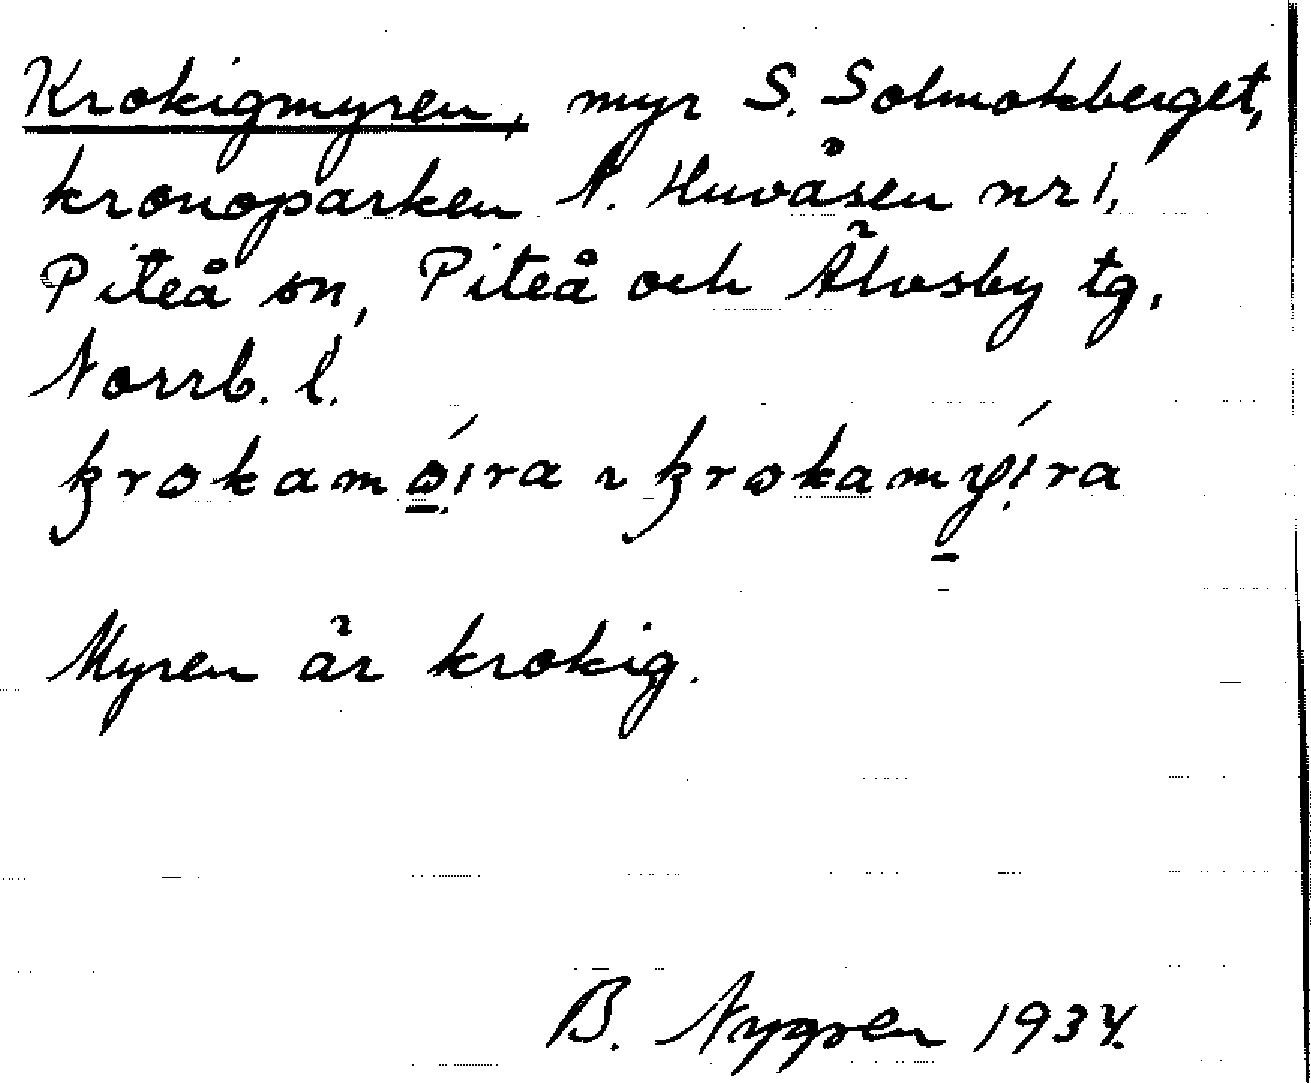 Krokigmyren, myr S. Solmokberget,
kronoparken N. Huvåsen nr 1,
Piteå sn, Piteå och Älvsby tg,
Norrb. l.
Myren är krokig.
B. Nygren 1934.